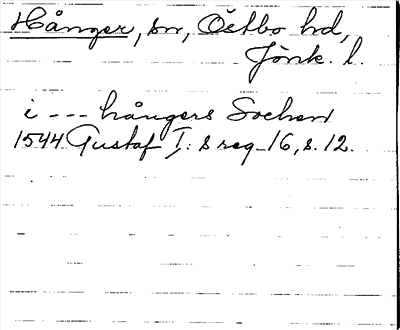 Hånger, sn, Östbo hd,
Jönk. l.
i --- hångers Sochen
1544 Gustaf I:s reg. 16, s. 12.